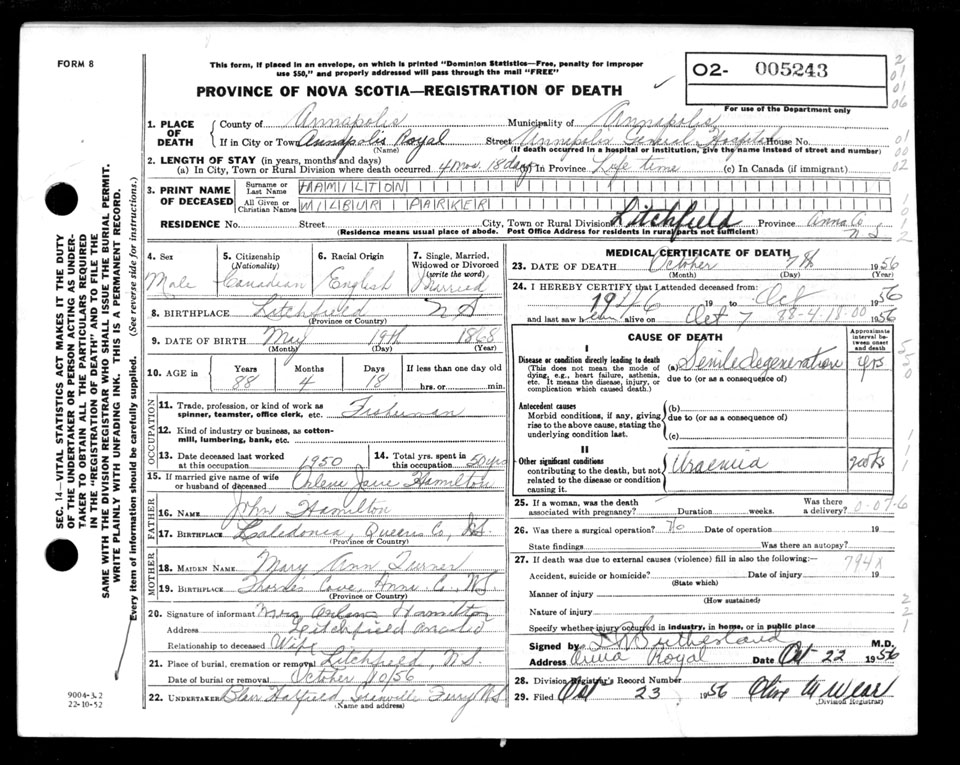 FORM 8
This form, if placed in an envelope, on which is printed "Dominion Statistics—Free, penalty for improper
use $50," and properly addressed will pass through the mail "FREE"
PROVINCE OF NOVA SCOTIA—REGISTRATION OF DEATH
02- 005243
For use of the Department only
1. PLACE OF DEATH
County of Annapolis Municipality of Annapolis
If in City or Town Annapolis Royal Street Annapolis General Hospital House No.
(Name) (If death occurred in a hospital or institution, give the name instead of street and number)
2. LENGTH OF STAY (in years, months and days)
(a) In City, Town or Rural Division where death occurred 4 Mos. 18 days In Province Life time (c) In Canada (if immigrant)
3. PRINT NAME OF DECEASED
Surname or Last Name HAMILTON
All Given or Christian Names WILBUR PARKER
RESIDENCE No. Street City, Town or Rural Division Litchfield Province Anna Co. N S
(Residence means usual place of abode. Post Office Address for residents in rural parts not sufficient)
4. Sex Male
5. Citizenship (Nationality) Canadian
6. Racial Origin English
7. Single, Married, Widowed or Divorced (write the word) Married
8. BIRTHPLACE Litchfield N S
(Province or Country)
9. DATE OF BIRTH May 19th 1868
(Month) (Day) (Year)
10. AGE in Years 88 Months 4 Days 18 If less than one day old hrs. or min.
OCCUPATION
11. Trade, profession, or kind of work as spinner, teamster, office clerk, etc. Fisherman
12. Kind of industry or business, as cotton-mill, lumbering, bank, etc.
13. Date deceased last worked at this occupation 1950
14. Total yrs. spent in this occupation 50 yrs
15. If married give name of wife or husband of deceased Orlene Jane Hamilton
FATHER
16. NAME John Hamilton
17. BIRTHPLACE Caledonia, Queens Co, N.S.
(Province or Country)
MOTHER
18. MAIDEN NAME Mary Ann Turner
19. BIRTHPLACE Thornes Cove, Anna Co. NS
(Province or Country)
20. Signature of informant Mrs Orlene Hamilton
Address Litchfield
Relationship to deceased Wife
21. Place of burial, cremation or removal Litchfield, N.S.
Date of burial or removal October 10/56
22. UNDERTAKER Blair Hatfield, Ferry NS
(Name and address)
MEDICAL CERTIFICATE OF DEATH
23. DATE OF DEATH October 7th 1956
(Month) (Day) (Year)
24. I HEREBY CERTIFY that I attended deceased from:
1946 19 to Oct 1956
and last saw him alive on Oct 7 88-4.18-00 1956
CAUSE OF DEATH
Approximate interval between onset and death
I
Disease or condition directly leading to death (a) Senile degeneration yrs
(This does not mean the mode of dying, e.g., heart failure, asthenia, etc. It means the disease, injury, or complication which caused death.)
due to (or as a consequence of)
Antecedent causes (b)
Morbid conditions, if any, giving rise to the above cause, stating the underlying condition last.
due to (or as a consequence of)
(c)
II
Other significant conditions Uraemia
contributing to the death, but not related to the disease or condition causing it.
25. If a woman, was the death associated with pregnancy? Duration weeks. Was there a delivery? 0-07-6
26. Was there a surgical operation? No Date of operation 19
State findings Was there an autopsy?
27. If death was due to external causes (violence) fill in also the following: 794X
Accident, suicide or homicide? Date of injury 19
(State which)
Manner of injury
(How sustained)
Nature of injury
Specify whether injury occurred in industry, in home, or in public place
Signed by Sutherland M.D.
Address Anna Royal Date Oct 22 1956
28. Division Registrar's Record Number
29. Filed Oct 23 1956 Olive M Wear
(Division Registrar)
SEC. 14—VITAL STATISTIC ACT MAKES IT THE DUTY
OF THE UNDERTAKER OR PERSON ACTING AS UNDER-
TAKER TO OBTAIN ALL THE PARTICULARS REQUIRED
IN THE "REGISTRATION OF DEATH" AND TO FILE THE
SAME WITH THE DIVISION REGISTRAR WHO SHALL ISSUE THE BURIAL PERMIT.
WRITE PLAINLY WITH UNFADING INK. THIS IS A PERMANENT RECORD.
Every item of information should be carefully supplied. (See reverse side for instructions.)
9004-3.2
22-10-52